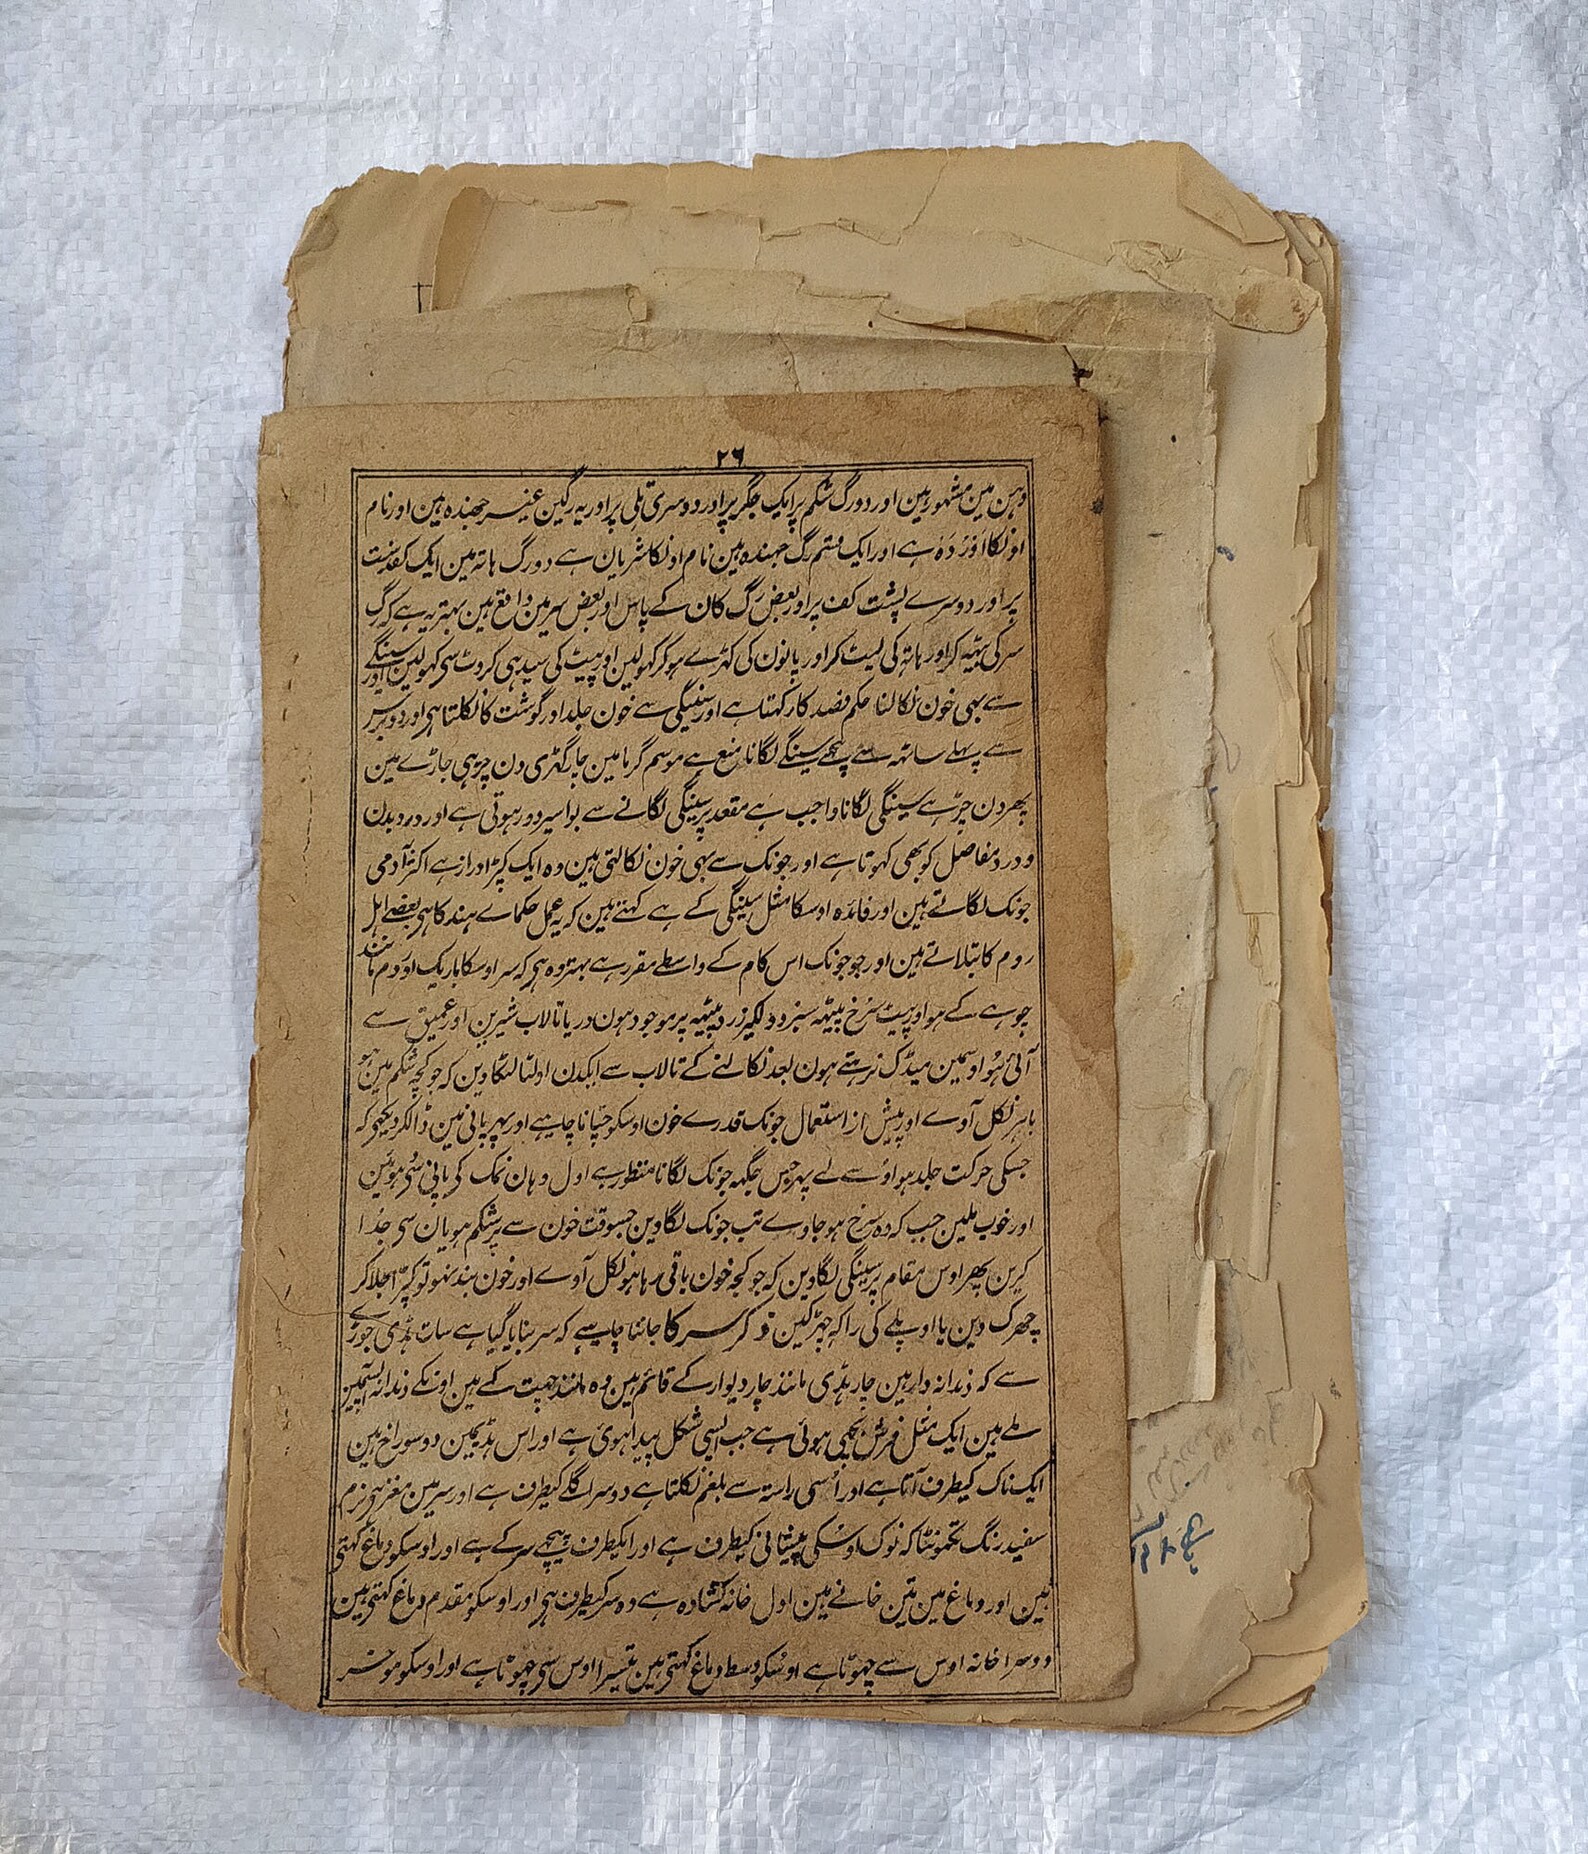 ۲۶
دہن مین مشہور ہین اور دو رگ شکم پر ایک جگر پر اور دوسری تلی پر اور یہ رگین غیر جہندہ ہین اور نام
اونکا اَوْرِدَہ ہے اور ایک قسم رگ جہندہ ہین نام اونکا شریان ہے دو رگ ہاتہ مین ایک کف دست
پر اور دوسرے پشت کف پر اور بعض رگ کان کے پاس اور بعض سر مین واقع ہین بہتر یہ ہے کہ رگ
سر کی بیٹہہ کر اور ہاتہ کی لیٹ کر اور پانون کی کہڑے ہو کر کہولین اور پیٹ کی سیدہی کروٹ سی کہولین اور سینگے
سے بہی خون نکالنا حکم فصد کا رکہتا ہے اور سینگی سے خون جلد اور گوشت کا نکلتا ہی اور دو برس
سے پہلے ساٹہہ سے پیچہے سینگے لگانا منع ہے موسم گرما مین چار گہڑی دن چڑہی جاڑے مین
پہر دن چڑہے سینگی لگانا واجب ہے مقعد پر سینگی لگانے سے بواسیر دور ہوتی ہے اور درد بدن
و درد مفاصل کو بھی کہوتا ہے اور جونک سے بہی خون نکالتی ہین وہ ایک کیڑا دراز ہے اکثر آدمی
جونک لگاتے ہین اور فائدہ اوسکا مثل سینگی کے ہے کہتے ہین کہ یہ عمل حکماے ہند کا ہی بعضے اہل
روم کا بتلاتے ہین اور جو جونک اس کام کے واسطے مقرر ہے بہتر وہ ہی کہ سر اوسکا باریک اور دم مانند
چوہے کے ہو اور پیٹ سُرخ پیٹہہ سبز دو لکیر زرد پیٹہہ پر موجود ہون دریا یا تالاب شیرین اور عمیق سے
آئی ہو اوسمین مینڈک نرہتے ہون بعد نکالنے کے تالاب سے ایکدن اولٹا لٹکاوین کہ جو کچہہ شکم مین ہو
باہر نکل آوے اور پیش از استعمال جونک قدرے خون اوسکو چٹانا چاہیے اور پہر پانی مین ڈالکر دیکہی کہ
جسکی حرکت جلد ہو اوسے لے پہر جس جگہہ جونک لگانا منظور ہے اول وہان نمک کی پانی سی دہوئین
اور خوب ملین جب کہ وہ سرخ ہو جاوے تب جونک لگاوین جسوقت خون سے پر شکم ہو یان سی جدا
کرین پھر اوس مقام پر سینگی لگاوین کہ جو کچہہ خون باقی رہا ہو نکل آوے اور خون بند نہو تو کپڑا جلا کر
چھرک دین یا اوپلے کی راکہہ چہڑکین ذکر سر کا جاننا چاہیے کہ سر بنایا گیا ہے سات ہڈی جوڑے
سے کہ دندانہ دار ہین چار ہڈی مانند چار دیوار کے قائم ہین دو مانند چہت کے ہین اونکے دندانہ آپسمین
ملے ہین ایک مثل فرش بچہی ہوئی ہے جب ایسی شکل پیدا ہوئ ہے اور اس ہڈیمین دو سوراخ ہین
ایک ناک کیطرف آتا ہے اور اُسی راستہ سے بلغم نکلتا ہے دوسرا گلے کیطرف ہے اور سرمین مغز ہی نرم
سفید رنگ تکمونٹا کہ نوک اوسکی پیشانی کیطرف ہے اور ایکطرف پیچہے سر کے ہے اور اوسکو دماغ کہتی
ہین اور دماغ مین تین خانے ہین اول خانہ کشادہ ہے وہ سر کیطرف ہی اور اوسکو مقدم دماغ کہتی ہین
دوسرا خانہ اوس سے چہوٹا ہے اوسکو وسط دماغ کہتی ہین تیسرا اوس سی چہوٹا ہے اور اوسکو موخر